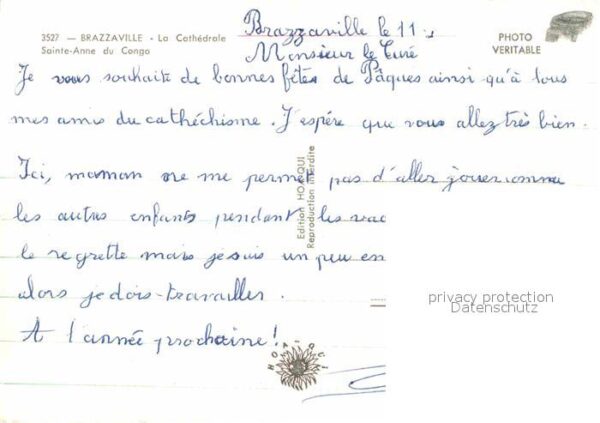 3527 — BRAZZAVILLE - La Cathédrale
Sainte-Anne du Congo
PHOTO
VERITABLE
Brazzaville le 11
Monsieur le Curé
Je vous souhaite de bonnes fêtes de Pâques ainsi qu'à tous
mes amis du cathéchisme. J'espére que vous allez très bien.
Ici, maman ne me permet pas d'aller jouer comme
les autres enfants pendant les vac
le regrette mais je suis un peu en
alors je dois travailler.
A l'année prochaine!
Edition HOA-QUI
Reproduction interdite
HOA-QUI
privacy protection
Datenschutz